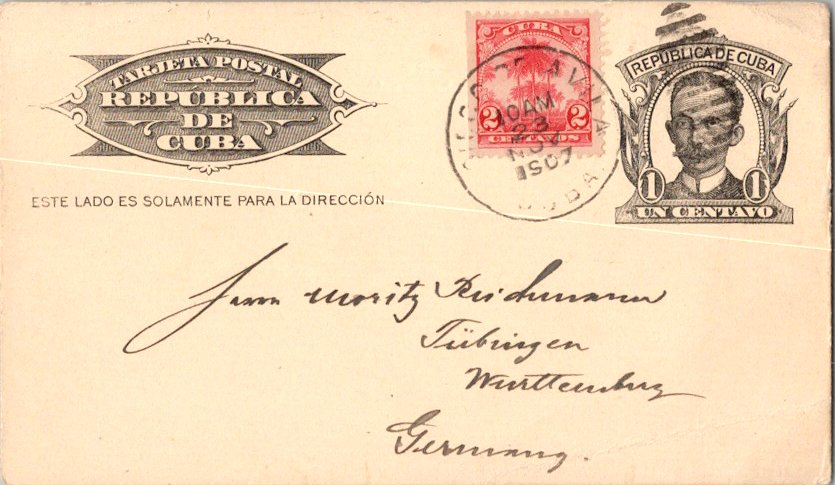 TARJETA POSTAL
REPÚBLICA
DE
CUBA
ESTE LADO ES SOLAMENTE PARA LA DIRECCIÓN
CUBA
2 2
CENTAVOS
CIEGO DE AVILA
10 AM
23
NOV
1907
CUBA
REPUBLICA DE CUBA
1 1
UN CENTAVO
Herrn Moritz Reichmann
Tübingen
Württemberg
Germany.